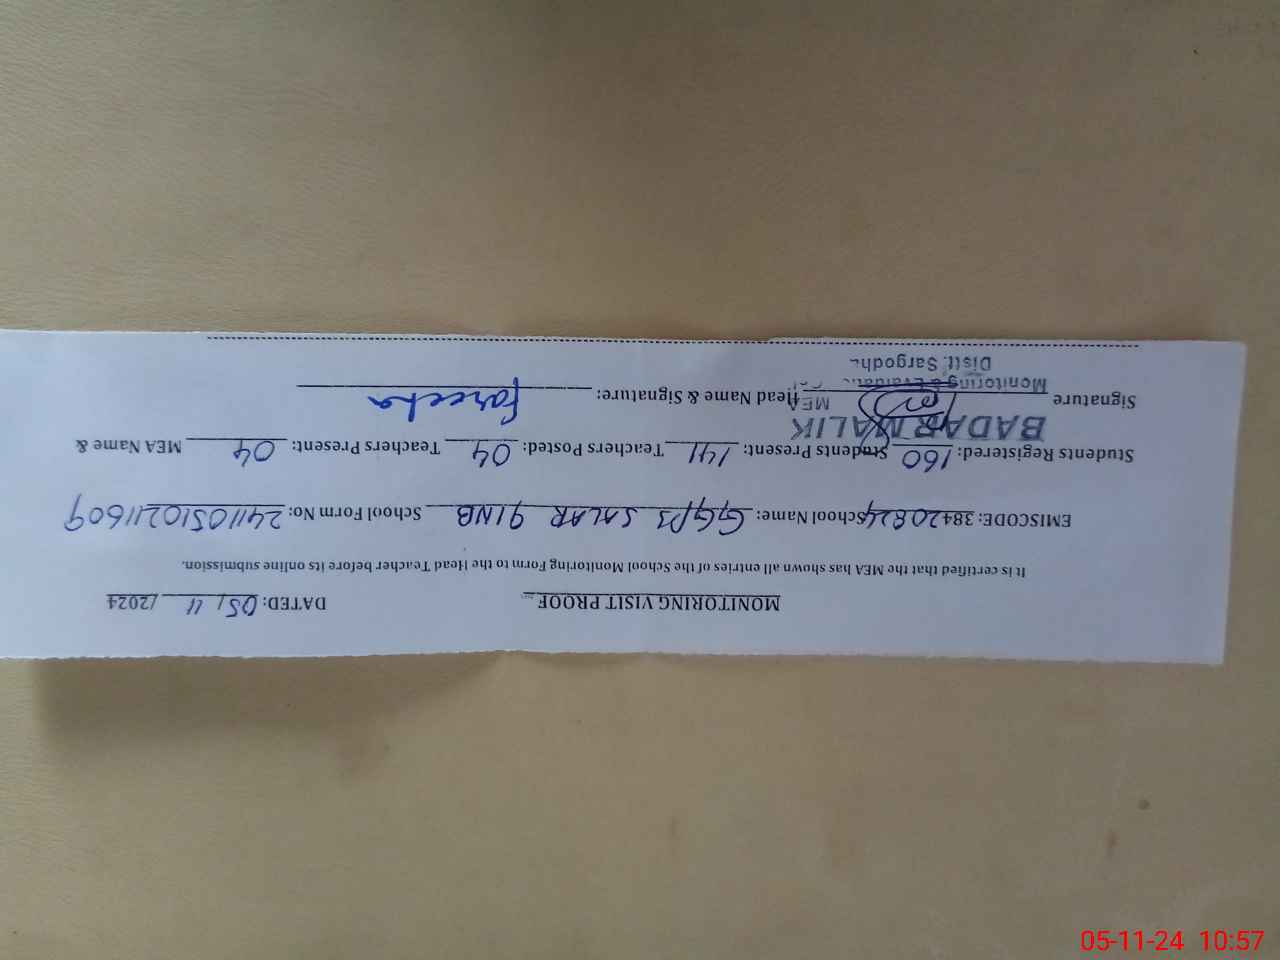 MONITORING VISIT PROOF DATED: 05/11/2024
It is certified that the MEA has shown all entries of the School Monitoring Form to the Head Teacher before its online submission.
EMISCODE: 38420824 School Name: GGPS SALAR 91NB School Form No: 24110510211609
Students Registered: 160 Students Present: 141 Teachers Posted: 04 Teachers Present: 04 MEA Name &
BADAR MALIK
Signature Head Name & Signature: Fareeha
MEA
Monitoring & Evaluati
Distt. Sargodha
05-11-24 10:57